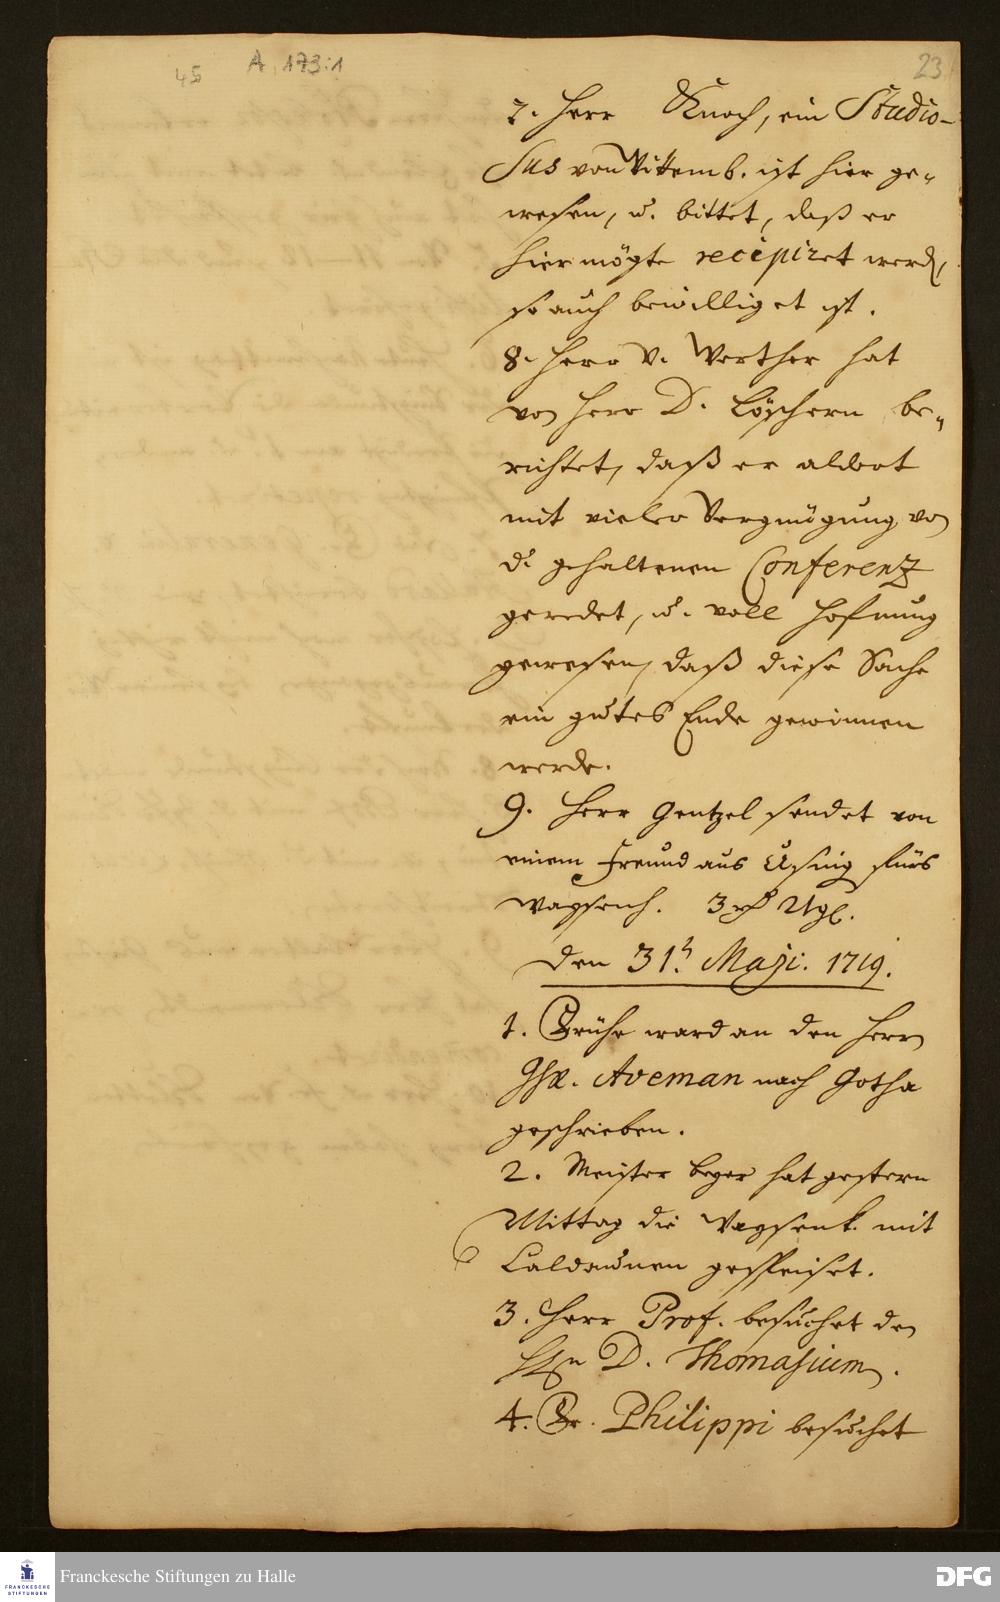 45 A 173:1 23
7. Herr Knoch, ein Studio-
sus von Wittemb. ist hier ge-
wesen, u. bittet, daß er
hier mögte recipiret werd,
so auch bewilliget ist.
8. Herr v. Werther hat
von Herr D. Löschern be-
richtet, daß er aldort
mit vieler Vergnügung von
d. gehaltenen Conferenz
geredet, u. voll Hofnung
gewesen, daß diese Sache
ein gutes Ende gewinnen
werde.
9. Herr Gentzel sendet von
einem Freund aus fürs
Waysenh. 3
den 31. Maji. 1719.
1. Frühe ward an den Herrn
Aveman nach Gotha
geschrieben.
2. Meister Beyer hat gestern
Mittag die Waysenk. mit
Caldaunen gespeiset.
3. Herr Prof. besuchet den
Hn D. Thomasium.
4. Philippi besuchet
FRANCKESCHE STIFTUNGEN
Franckesche Stiftungen zu Halle
DFG